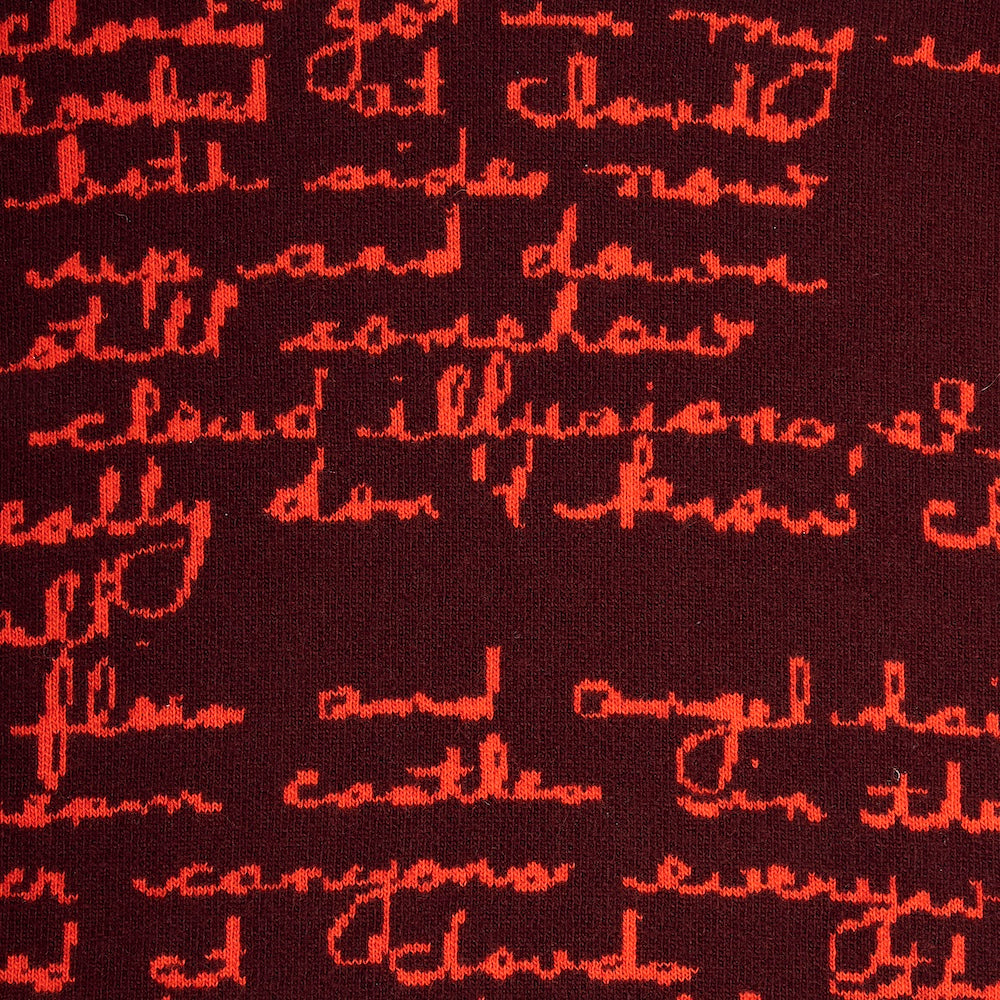 clouds got in my
looked at clouds
both sides now
up and down
still somehow
cloud illusions, I
eally don't know cl
all
flows and angel hai
eam castles in the
er canyons everyw
ed at clouds th